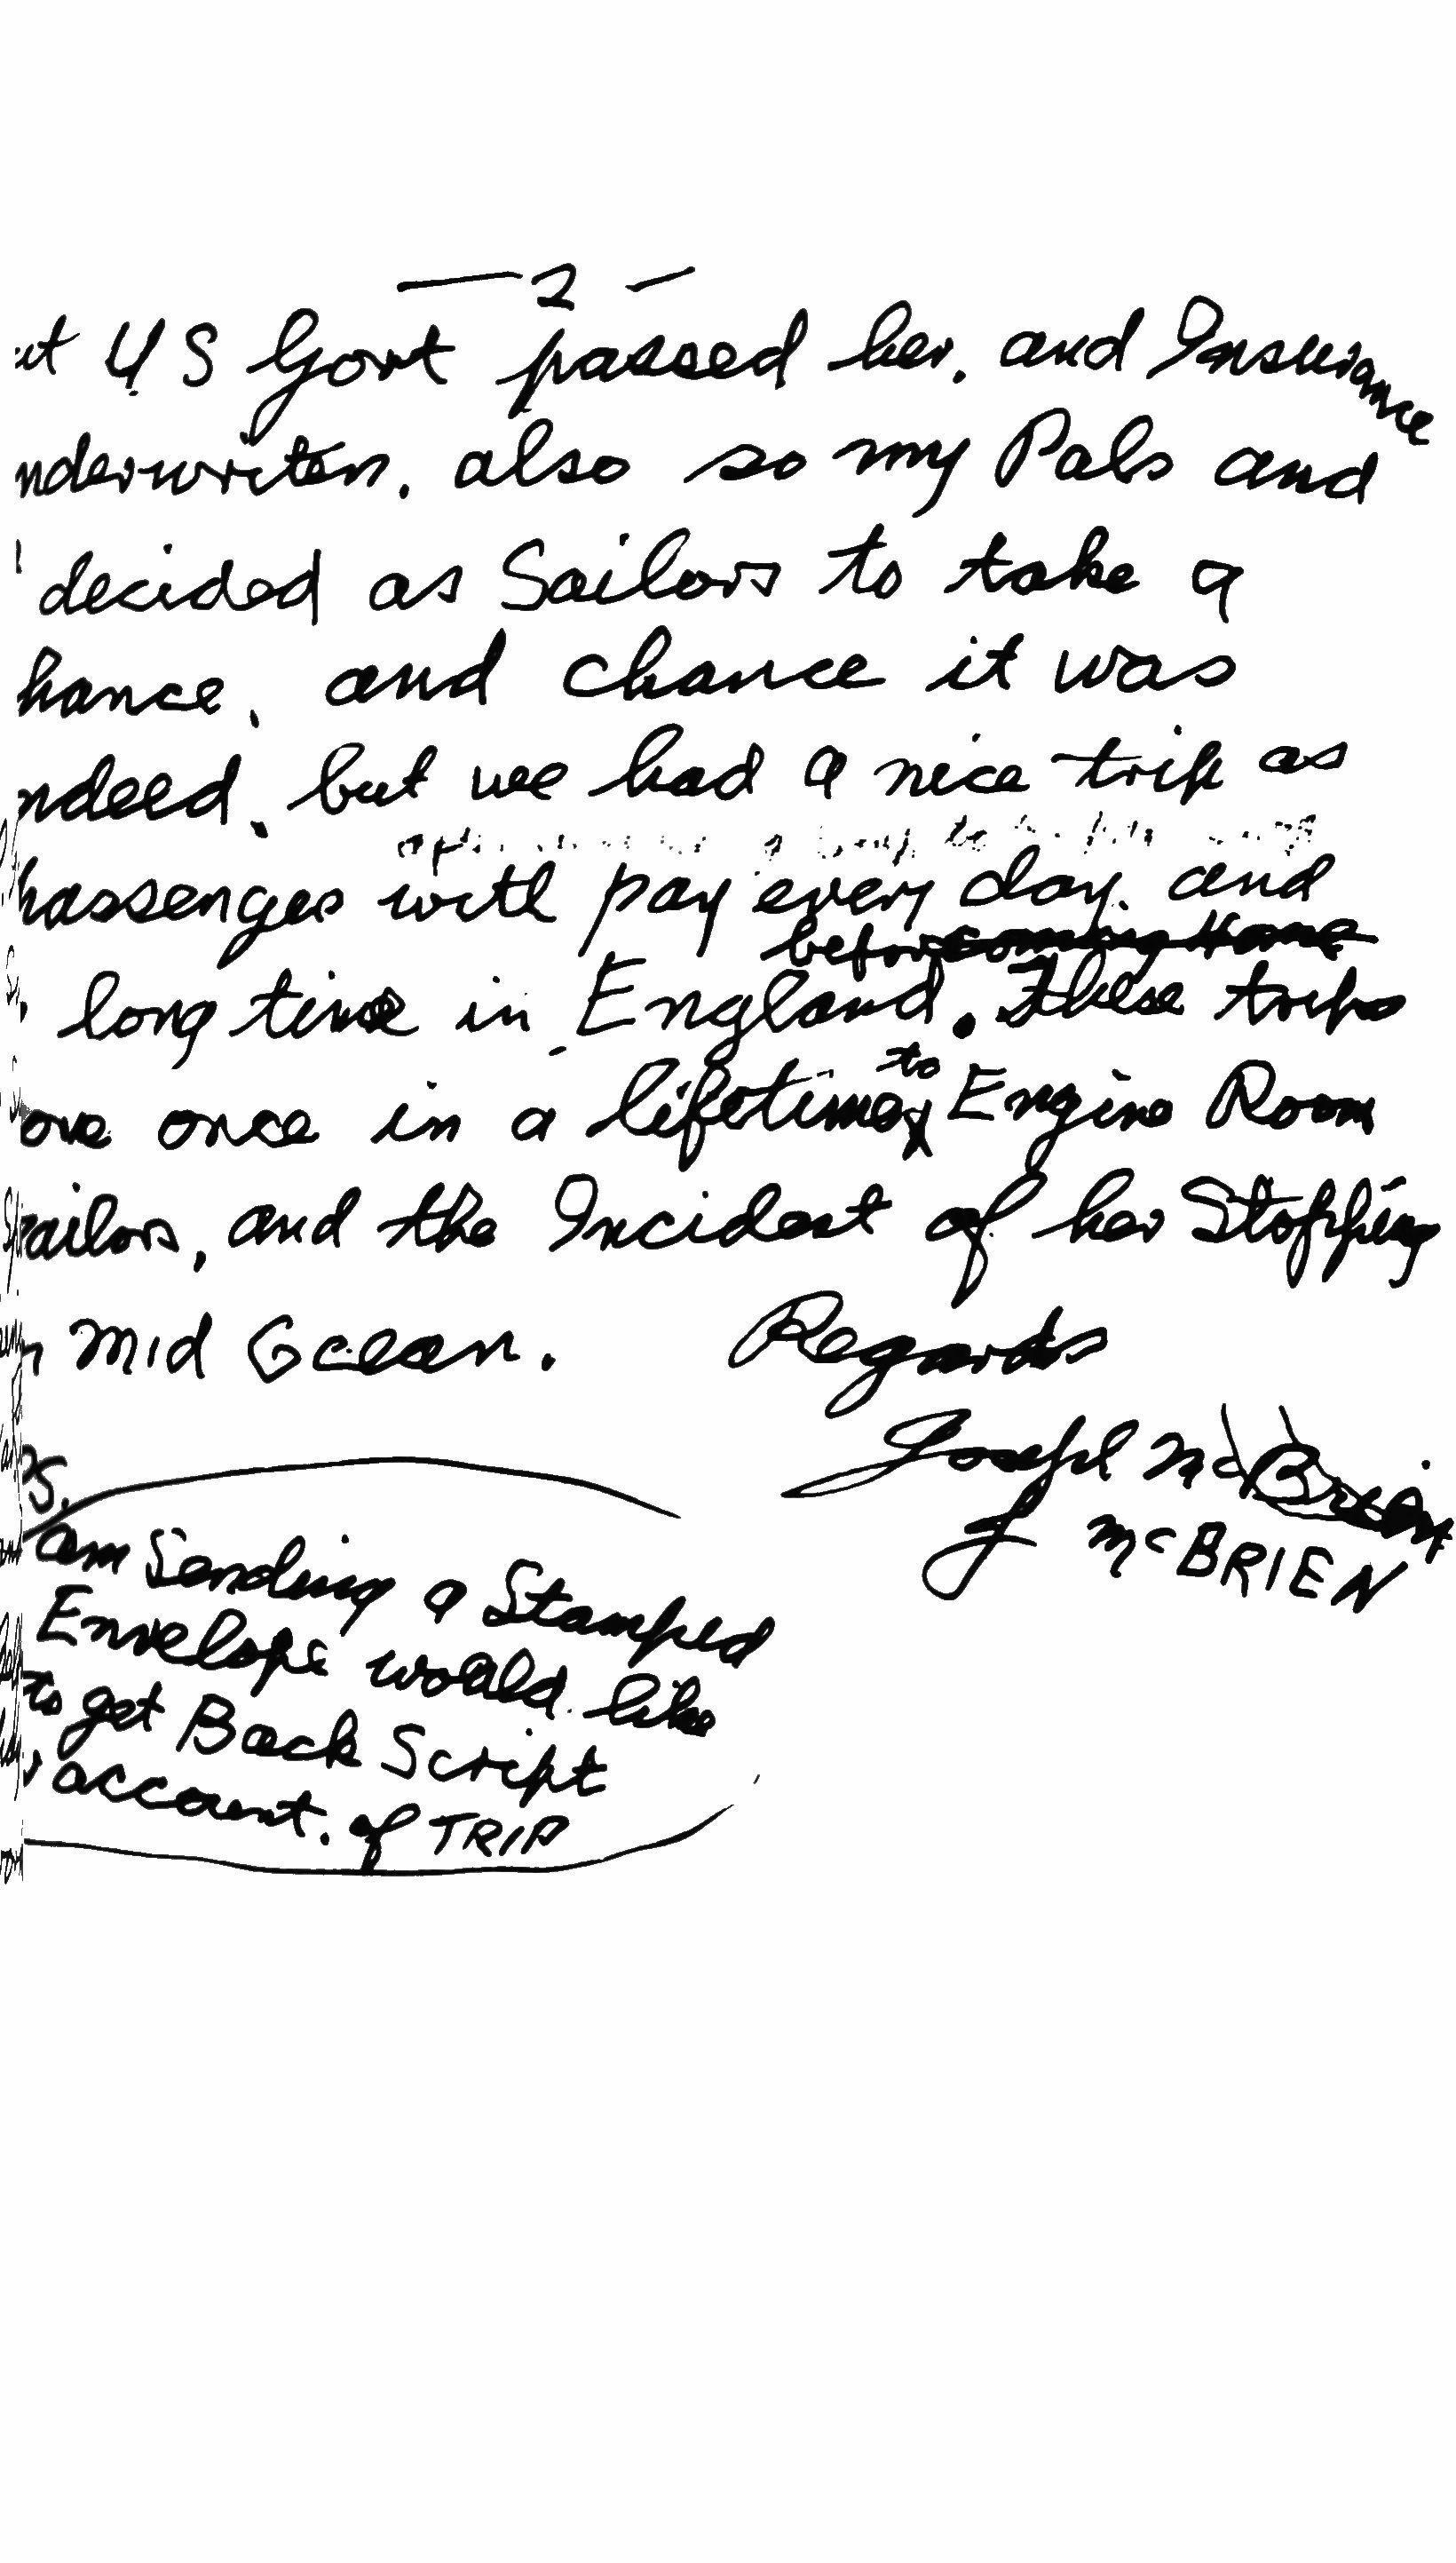 — 2 —
ut US Govt passed her. and Insurance
nderwriten. also so my Pals and
I decided as Sailors to take a
hance. and chance it was
ndeed. but we had a nice trip as
passenges with pay every day. and
before coming Home
long time in England. These trips
are once in a lifetime to Engine Room
Sailors, and the Incident of her Stopping
n mid Ocean. Regards
Joseph McBrien
J McBRIEN
PS.
am Sending a Stamped
Envelope would like
to get Back Script
account. of TRIP